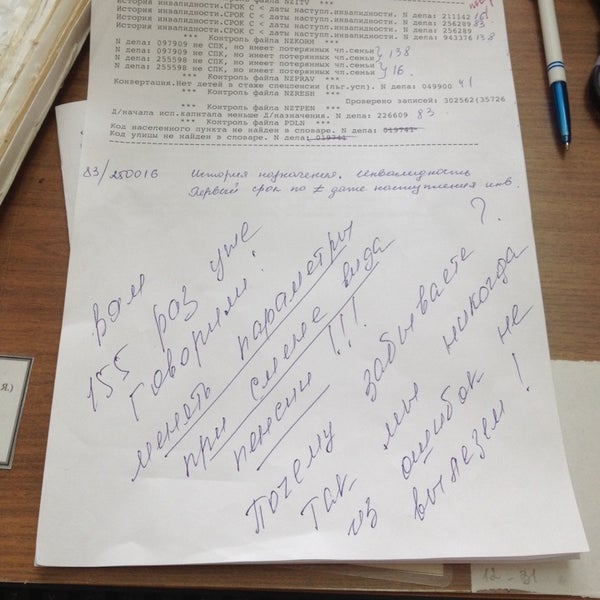 *** Контроль файла NZITV ***
История инвалидности.СРОК С < даты наступл.инвалидности. N дела: 211142 161
История инвалидности.СРОК С < даты наступл.инвалидности. N дела: 256289 83
История инвалидности.СРОК С < даты наступл.инвалидности. N дела: 256289
История инвалидности.СРОК С < даты наступл.инвалидности. N дела: 943376 138
*** Контроль файла NZKORM ***
N дела: 097909 не СПК, но имеет потерянных чл.семьи
N дела: 097909 не СПК, но имеет потерянных чл.семьи 138
N дела: 255598 не СПК, но имеет потерянных чл.семьи
N дела: 255598 не СПК, но имеет потерянных чл.семьи 16.
*** Контроль файла NZPRAV ***
Конвертация.Нет детей в стаже спецпенсии (льг.усл). N дела: 049900 41
*** Контроль файла NZRESH ***
Проверено записей: 302562(35726
*** Контроль файла NZTPEN ***
Д/начала исп.капитала меньше Д/назначения. N дела: 226609 83.
*** Контроль файла PDLN ***
Код населенного пункта не найден в словаре. N дела: 019741
Код улицы не найден в словаре. N дела: 019741
83/250016 История назначения. инвалидность
Первый срок по ≠ дате наступления инв.
Вам
155 раз уже
Говорили:
менять параметры
при смене вида
пенсии!!!
Почему забываете?
Так мы никогда
из ошибок не
вылезем!
Я.)
12-31